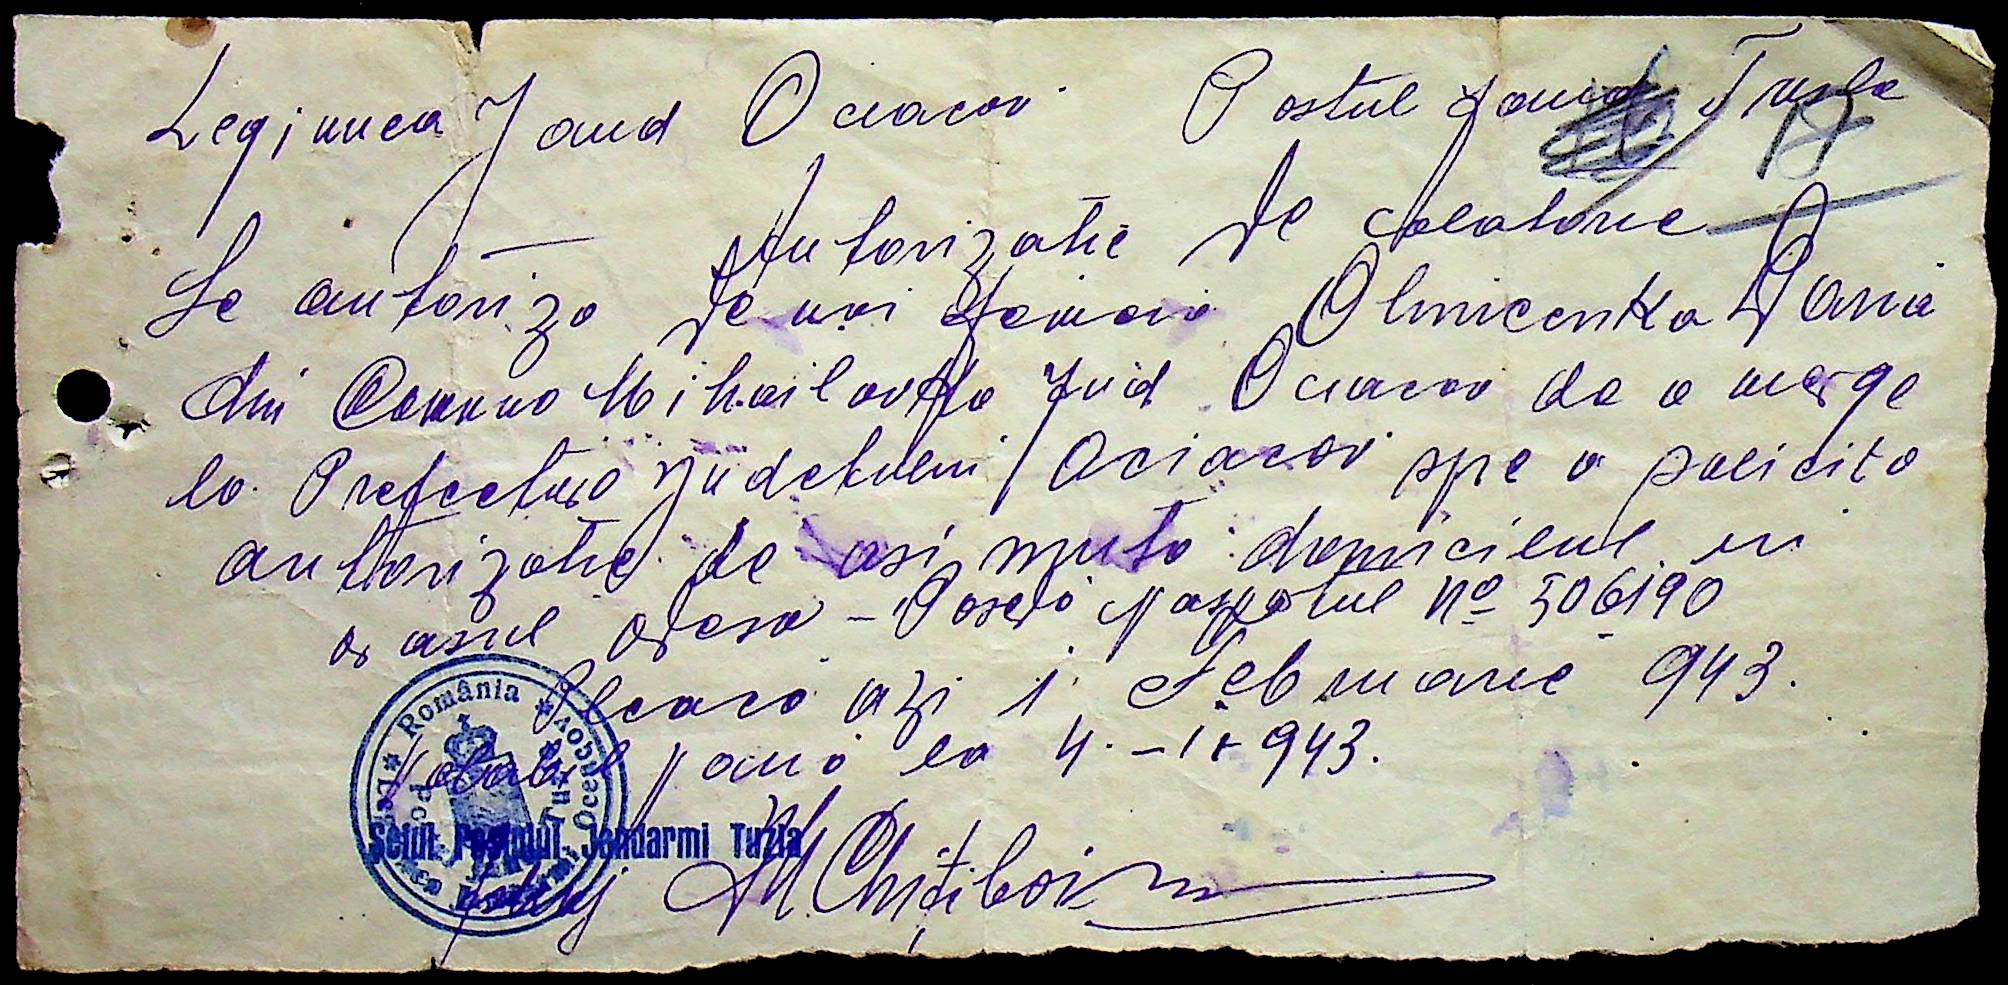 Legiunea Jand Oceacov Postul Jand Tusla
17
Autorizatie de calatorie
Se autoriza de noi femeia Olnicenka Daria
din Comuna Mihailovka Jud Oceacov de a merge
la Prefectura Judetului Oceacov spre a solicita
autorizatie de asi muta domiciliul in
orasul Odesa – Poseda pasportul No 506190
Pleaca azi 1 Februarie 943.
Valabil pana la 4.–II–943.
România
Oceacov
Seful Postului Jendarmi Tuzla
M Chițiboi